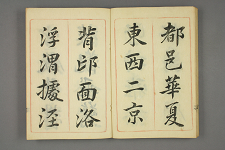 都邑華夏
東西二京
背邙面洛
浮渭據涇